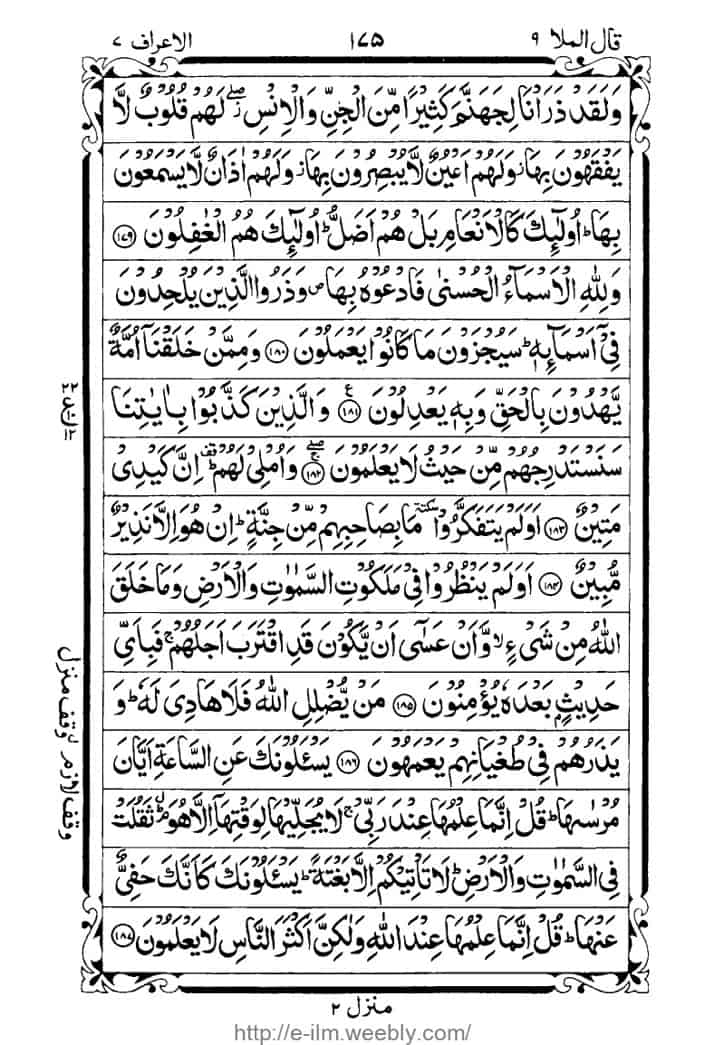 قال الملا ۹
۱۷۵
الاعراف ۷
وَلَقَدْ ذَرَاْنَا لِجَهَنَّمَ كَثِيْرًا مِّنَ الْجِنِّ وَالْاِنْسِ ۖ٘ لَهُمْ قُلُوْبٌ لَّا
يَفْقَهُوْنَ بِهَا ؗ وَلَهُمْ اَعْيُنٌ لَّا يُبْصِرُوْنَ بِهَا ؗ وَلَهُمْ اٰذَانٌ لَّا يَسْمَعُوْنَ
بِهَا ؕ اُولٰٓئِكَ كَالْاَنْعَامِ بَلْ هُمْ اَضَلُّ ؕ اُولٰٓئِكَ هُمُ الْغٰفِلُوْنَ ۱۷۹
وَلِلّٰهِ الْاَسْمَآءُ الْحُسْنٰى فَادْعُوْهُ بِهَا ۪ وَذَرُوا الَّذِيْنَ يُلْحِدُوْنَ
فِيْۤ اَسْمَآئِهٖ ؕ سَيُجْزَوْنَ مَا كَانُوْا يَعْمَلُوْنَ ۱۸۰ وَمِمَّنْ خَلَقْنَاۤ اُمَّةٌ
يَّهْدُوْنَ بِالْحَقِّ وَبِهٖ يَعْدِلُوْنَ ۱۸۱ ع وَالَّذِيْنَ كَذَّبُوْا بِاٰيٰتِنَا
سَنَسْتَدْرِجُهُمْ مِّنْ حَيْثُ لَا يَعْلَمُوْنَ ۱۸۲ وَاُمْلِيْ لَهُمْ ؕ اِنَّ كَيْدِيْ
مَتِيْنٌ ۱۸۳ اَوَلَمْ يَتَفَكَّرُوْا ٚ مَا بِصَاحِبِهِمْ مِّنْ جِنَّةٍ ؕ اِنْ هُوَ اِلَّا نَذِيْرٌ
مُّبِيْنٌ ۱۸۴ اَوَلَمْ يَنْظُرُوْا فِيْ مَلَكُوْتِ السَّمٰوٰتِ وَالْاَرْضِ وَمَا خَلَقَ
اللّٰهُ مِنْ شَيْءٍ ۙ وَّاَنْ عَسٰۤى اَنْ يَّكُوْنَ قَدِ اقْتَرَبَ اَجَلُهُمْ ۚ فَبِاَيِّ
حَدِيْثٍۭ بَعْدَهٗ يُؤْمِنُوْنَ ۱۸۵ مَنْ يُّضْلِلِ اللّٰهُ فَلَا هَادِيَ لَهٗ ؕ وَ
يَذَرُهُمْ فِيْ طُغْيَانِهِمْ يَعْمَهُوْنَ ۱۸۶ يَسْـَٔلُوْنَكَ عَنِ السَّاعَةِ اَيَّانَ
مُرْسٰىهَا ؕ قُلْ اِنَّمَا عِلْمُهَا عِنْدَ رَبِّيْ ۚ لَا يُجَلِّيْهَا لِوَقْتِهَاۤ اِلَّا هُوَ ؔۘ ثَقُلَتْ
فِي السَّمٰوٰتِ وَالْاَرْضِ ؕ لَا تَاْتِيْكُمْ اِلَّا بَغْتَةً ؕ يَسْـَٔلُوْنَكَ كَاَنَّكَ حَفِيٌّ
عَنْهَا ؕ قُلْ اِنَّمَا عِلْمُهَا عِنْدَ اللّٰهِ وَلٰكِنَّ اَكْثَرَ النَّاسِ لَا يَعْلَمُوْنَ ۱۸۷
وقف لازم وقف منزل
منزل ۲
http://e-ilm.weebly.com/